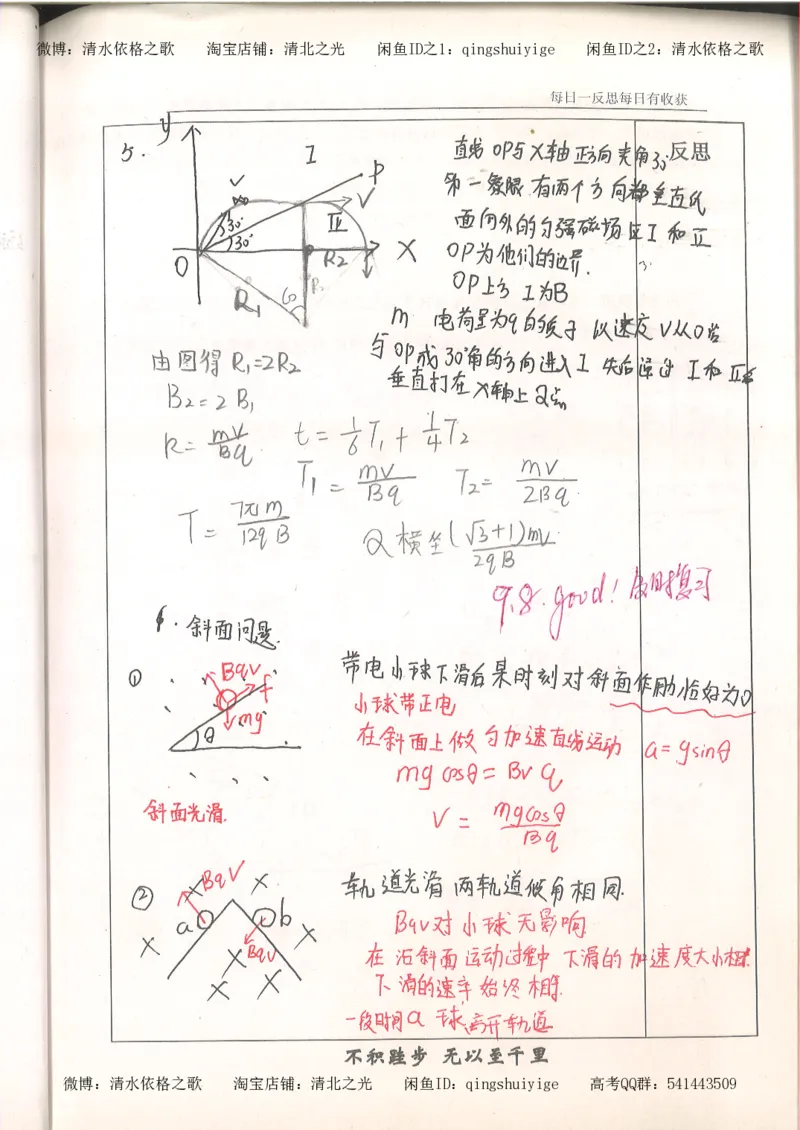 微博：清水依格之歌 淘宝店铺：清北之光 闲鱼ID之1：qingshuiyige 闲鱼ID之2：清水依格之歌
每日一反思每日有收获
反思
5.
y
I
P
V
V
30°
30°
II
O
R2
X
R1
60
直线OP与X轴正方向夹角30°
第一象限有两个方向都垂直纸
面向外的匀强磁场区I和II
OP为他们的边界.
OP上方 I为B
m 电荷量为q的质子 以速度V从O岀
与OP成30°角的方向进入I 先后通过 I和II区
垂直打在X轴上Q点
由图得 R1=2R2
B2=2B1
R=mV/Bq t=1/6T1+1/4T2
T1=mv/Bq T2=mv/2Bq
T=7πm/12qB Q横坐(√3+1)mv/2qB
9.8. good! 及时复习
6. 斜面问题.
① Bqv f mg θ
带电小球下滑后某时刻对斜面作用力恰好为0
小球带正电
在斜面上做匀加速直线运动 a=gsinθ
mg cosθ=Bvq
V=mgcosθ/Bq
斜面光滑.
② BqV a b Bqv
轨道光滑 两轨道倾角相同.
Bqv对小球无影响
在沿斜面运动过程中 下滑的加速度大小相等
下滑的速率始终相等.
一段时间a球离开轨道
不积跬步 无以至千里
微博：清水依格之歌 淘宝店铺：清北之光 闲鱼ID：qingshuiyige 高考QQ群：541443509